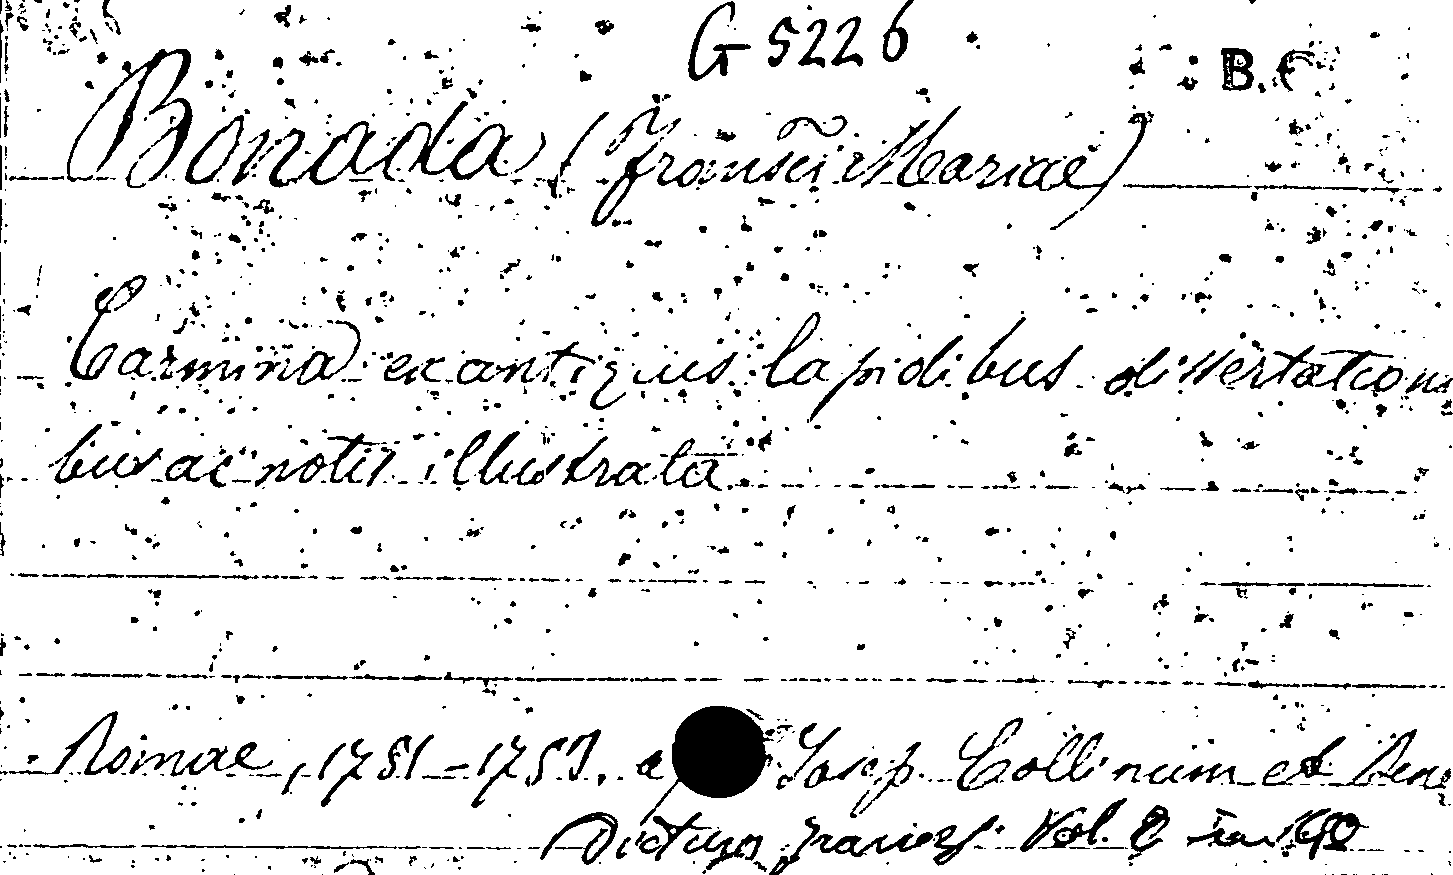 G 5226
B. C
Bonada (Francisci Mariae)
Carmina ex antiquis lapidibus dissertationi
bus ac notis illustrata
Romae, 1751-1753. Josep. Collinum et Bene
Vol. 2 in 4º